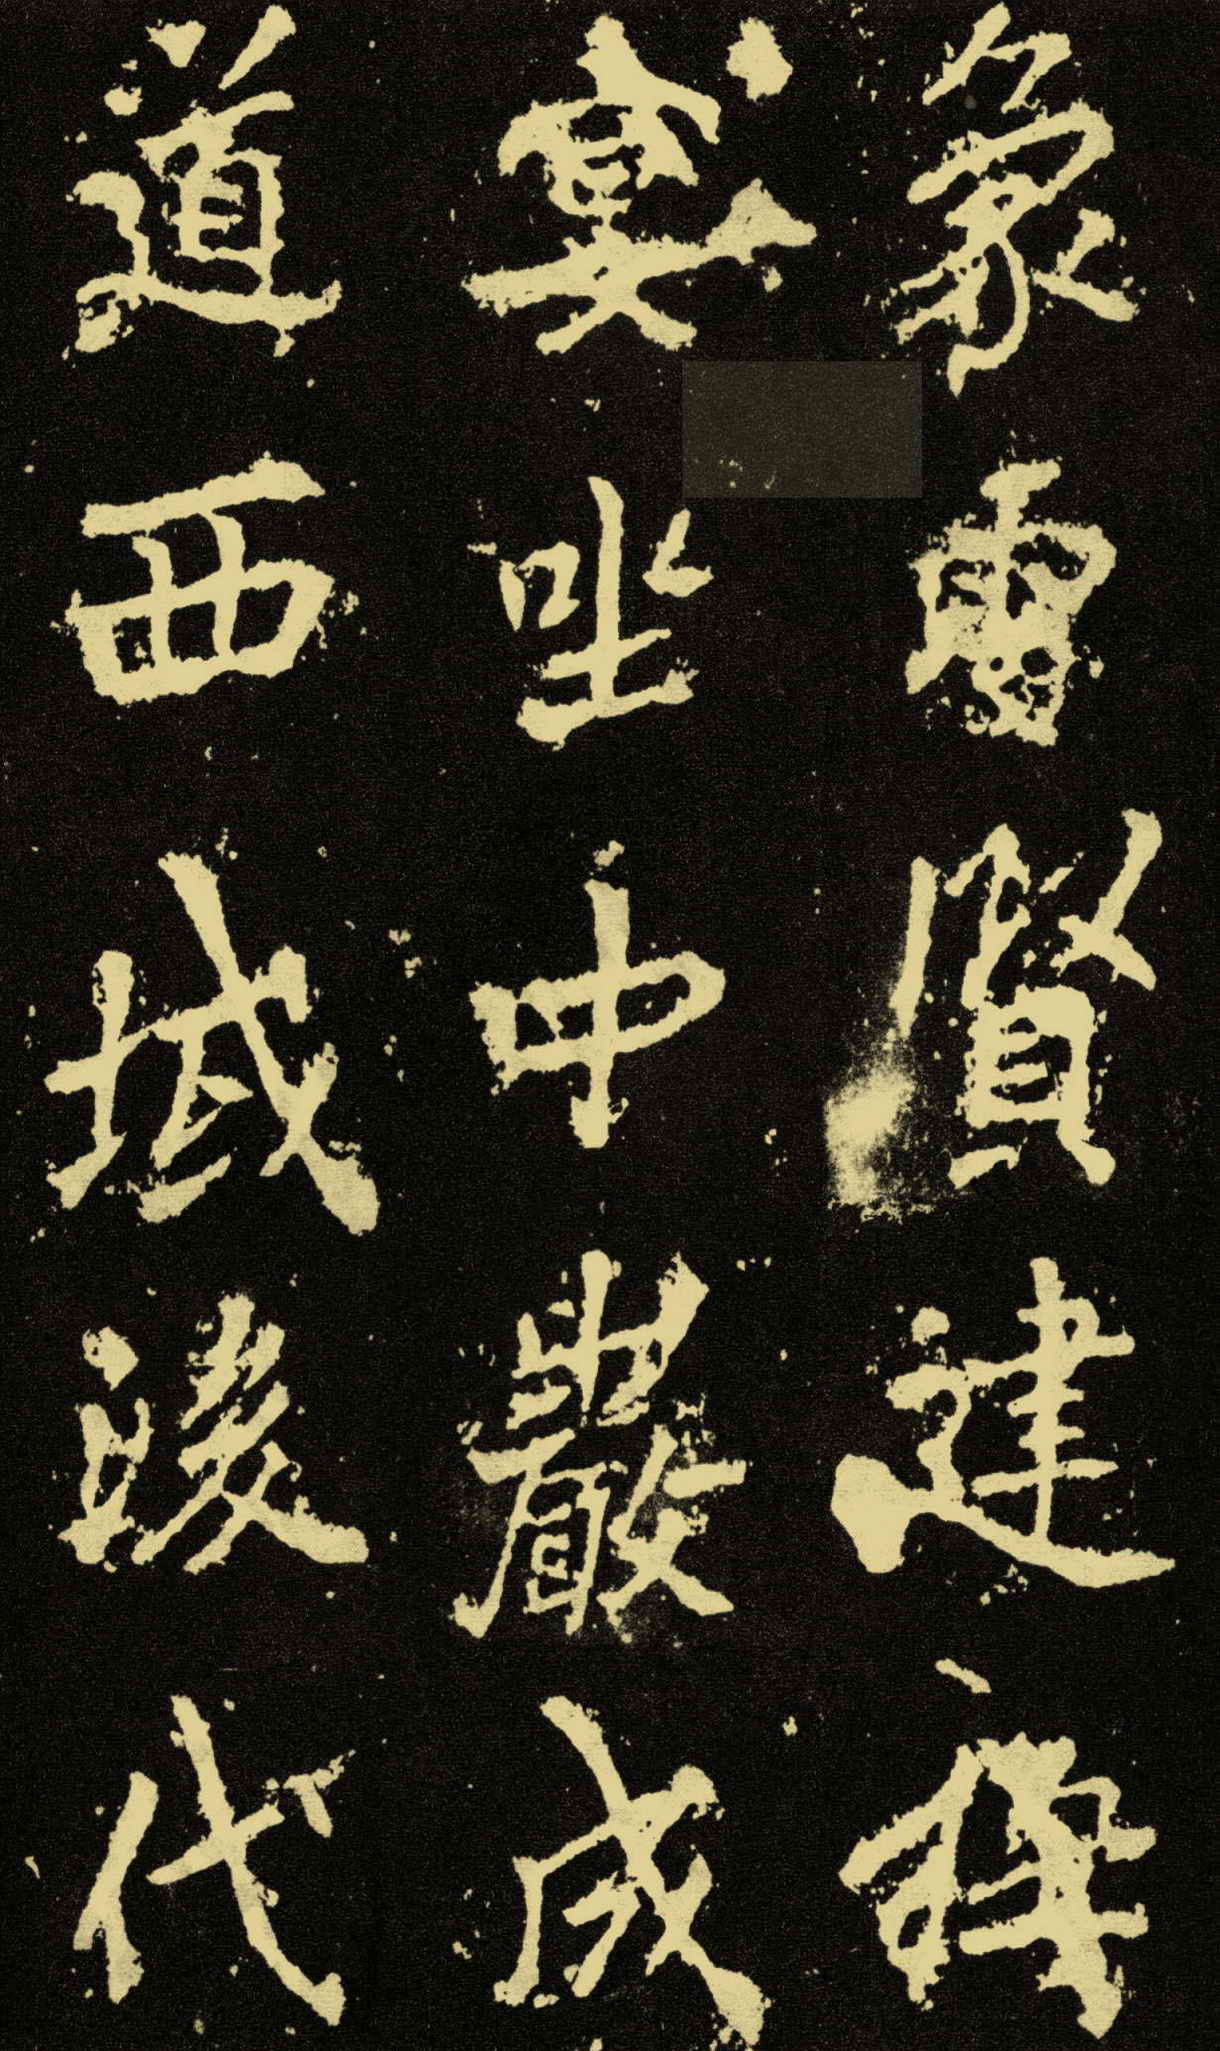 象雷賢建禪
宴坐中嚴成
道西域後代